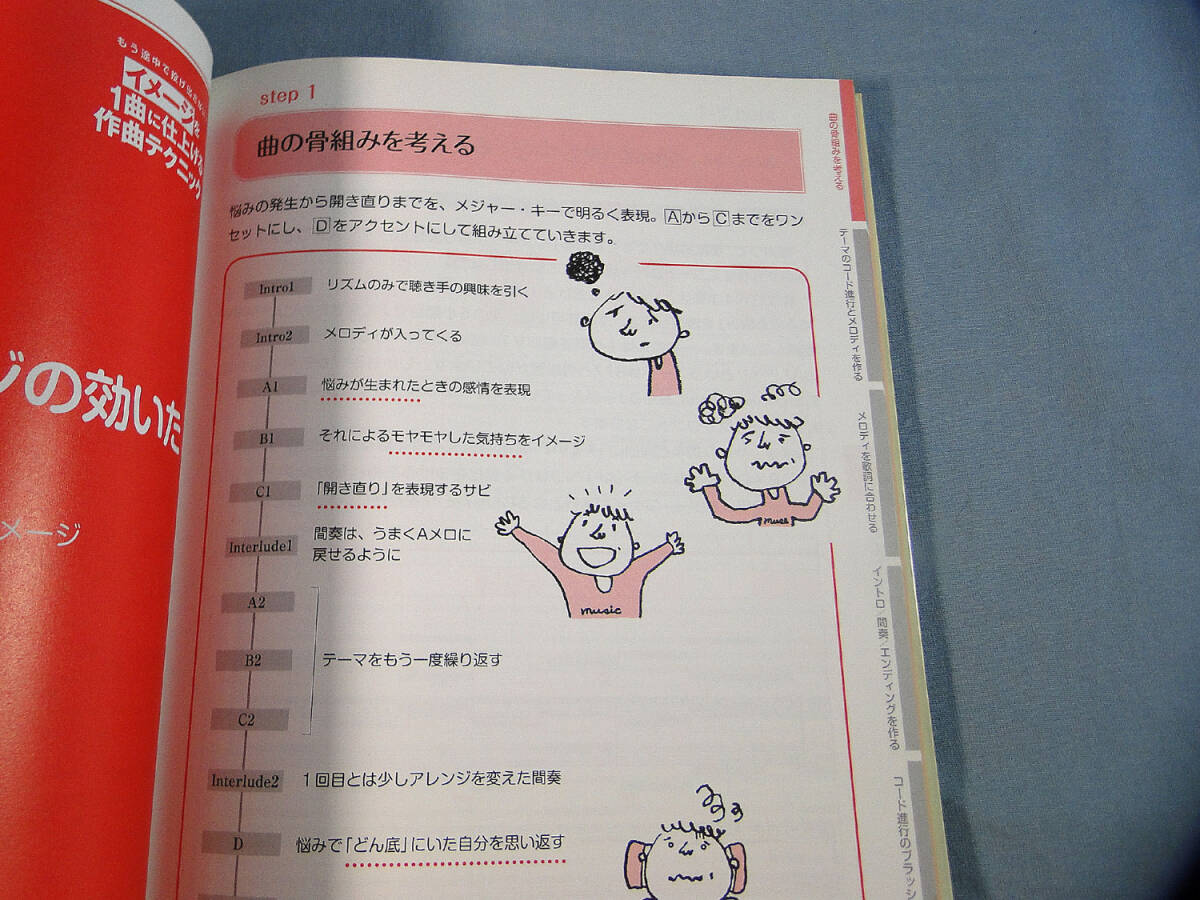 もう途中で投げ出さない
イメージを
1曲に仕上げる
作曲テクニック
ジの効いた
メージ
step 1
曲の骨組みを考える
悩みの発生から開き直りまでを、メジャー・キーで明るく表現。AからCまでをワン
セットにし、Dをアクセントにして組み立てていきます。
Intro1 リズムのみで聴き手の興味を引く
Intro2 メロディが入ってくる
A1 悩みが生まれたときの感情を表現
B1 それによるモヤモヤした気持ちをイメージ
C1 「開き直り」を表現するサビ
Interlude1 間奏は、うまくAメロに
戻せるように
A2
B2 テーマをもう一度繰り返す
C2
Interlude2 1回目とは少しアレンジを変えた間奏
D 悩みで「どん底」にいた自分を思い返す
music
music
曲の骨組みを考える
テーマのコード進行とメロディを作る
メロディを歌詞に合わせる
イントロ/間奏/エンディングを作る
コード進行のブラッシ